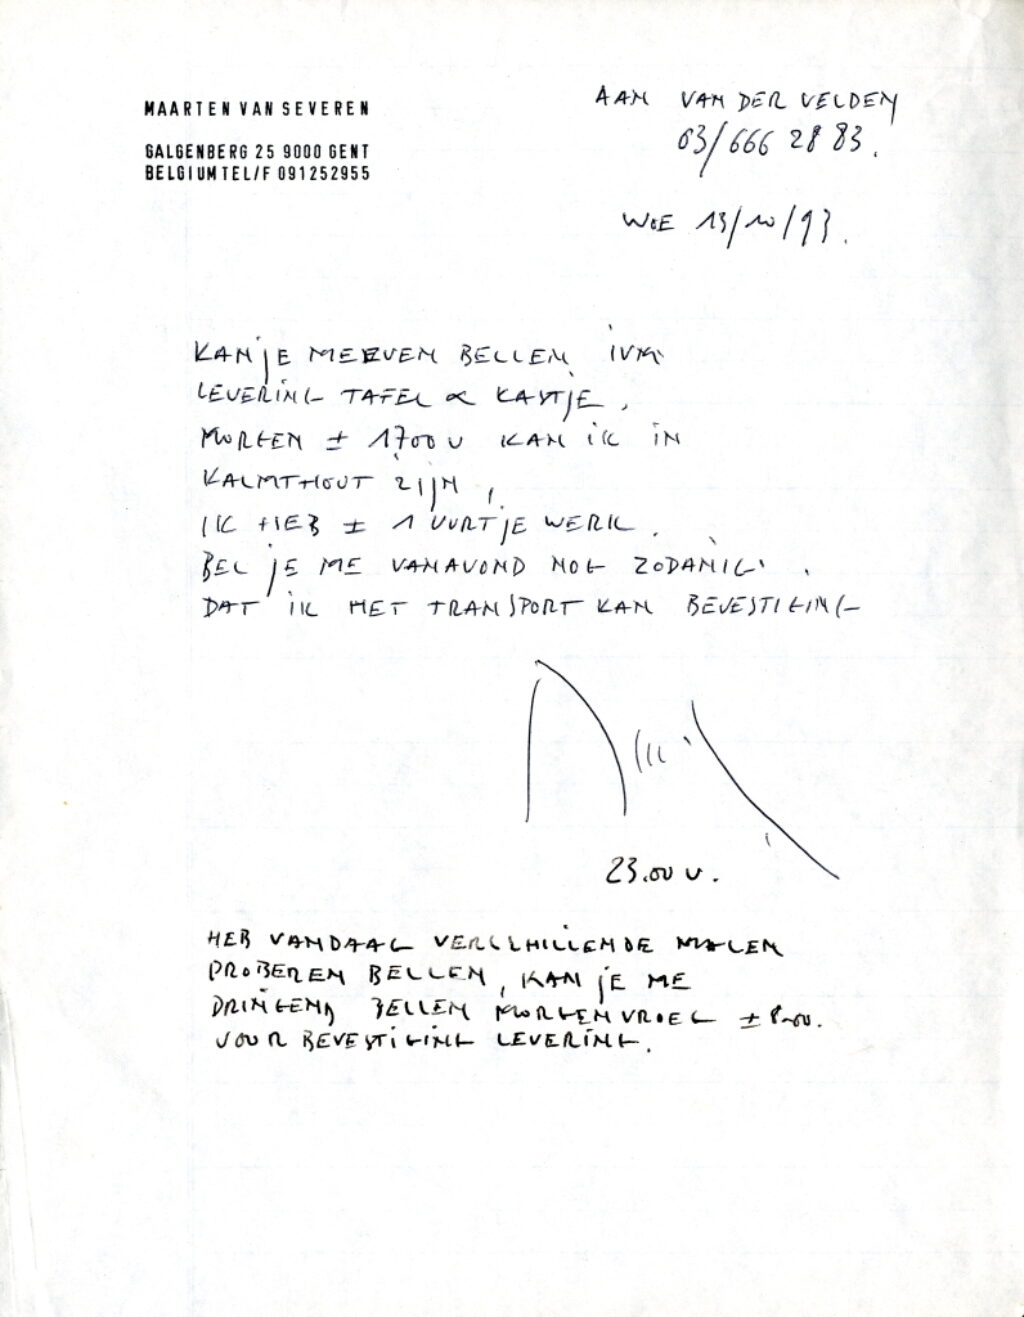 MAARTEN VAN SEVEREN
GALGENBERG 25 9000 GENT
BELGIUM TEL/F 091252955
AAN VAN DER VELDEN
03/666 28 83.
WOE 13/10/93.
KAN JE ME EVEN BELLEN IVM
LEVERING TAFEL & KASTJE.
MORGEN ± 1700 U KAN IK IN
KALMTHOUT ZIJN,
IK HEB ± 1 UURTJE WERK.
BEL JE ME VANAVOND NOG ZODANIG.
DAT IK HET TRANSPORT KAN BEVESTIGING
23.00 U.
HEB VANDAAG VERSCHILLENDE MALEN
PROBEREN BELLEN, KAN JE ME
DRINGEND BELLEN MORGENVROEG ±
VOOR BEVESTIGING LEVERING.